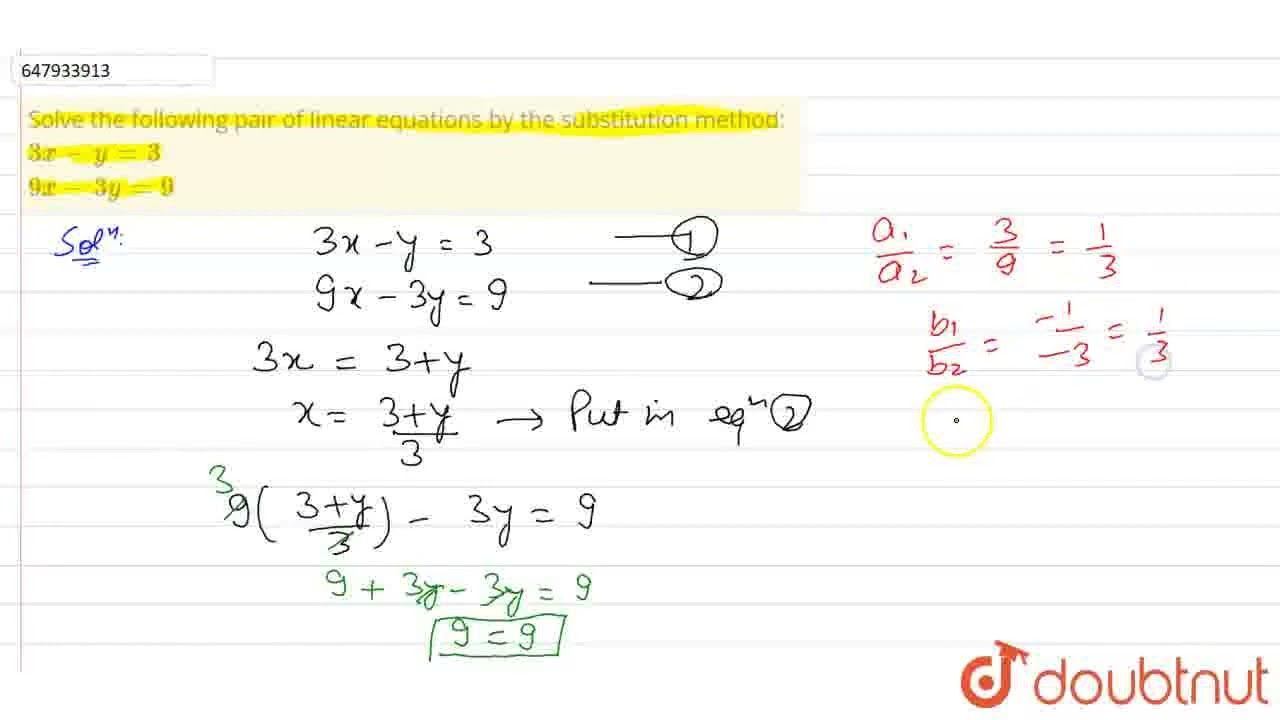 647933913
Solve the following pair of linear equations by the substitution method:
3x − y = 3
9x − 3y = 9
Solⁿ:
3x − y = 3 — 1
9x − 3y = 9 — 2
3x = 3 + y
x = (3+y)/3 → Put in eqⁿ 2
3
9((3+y)/3) − 3y = 9
9 + 3y − 3y = 9
9 = 9
a₁/a₂ = 3/9 = 1/3
b₁/b₂ = −1/−3 = 1/3
doubtnut